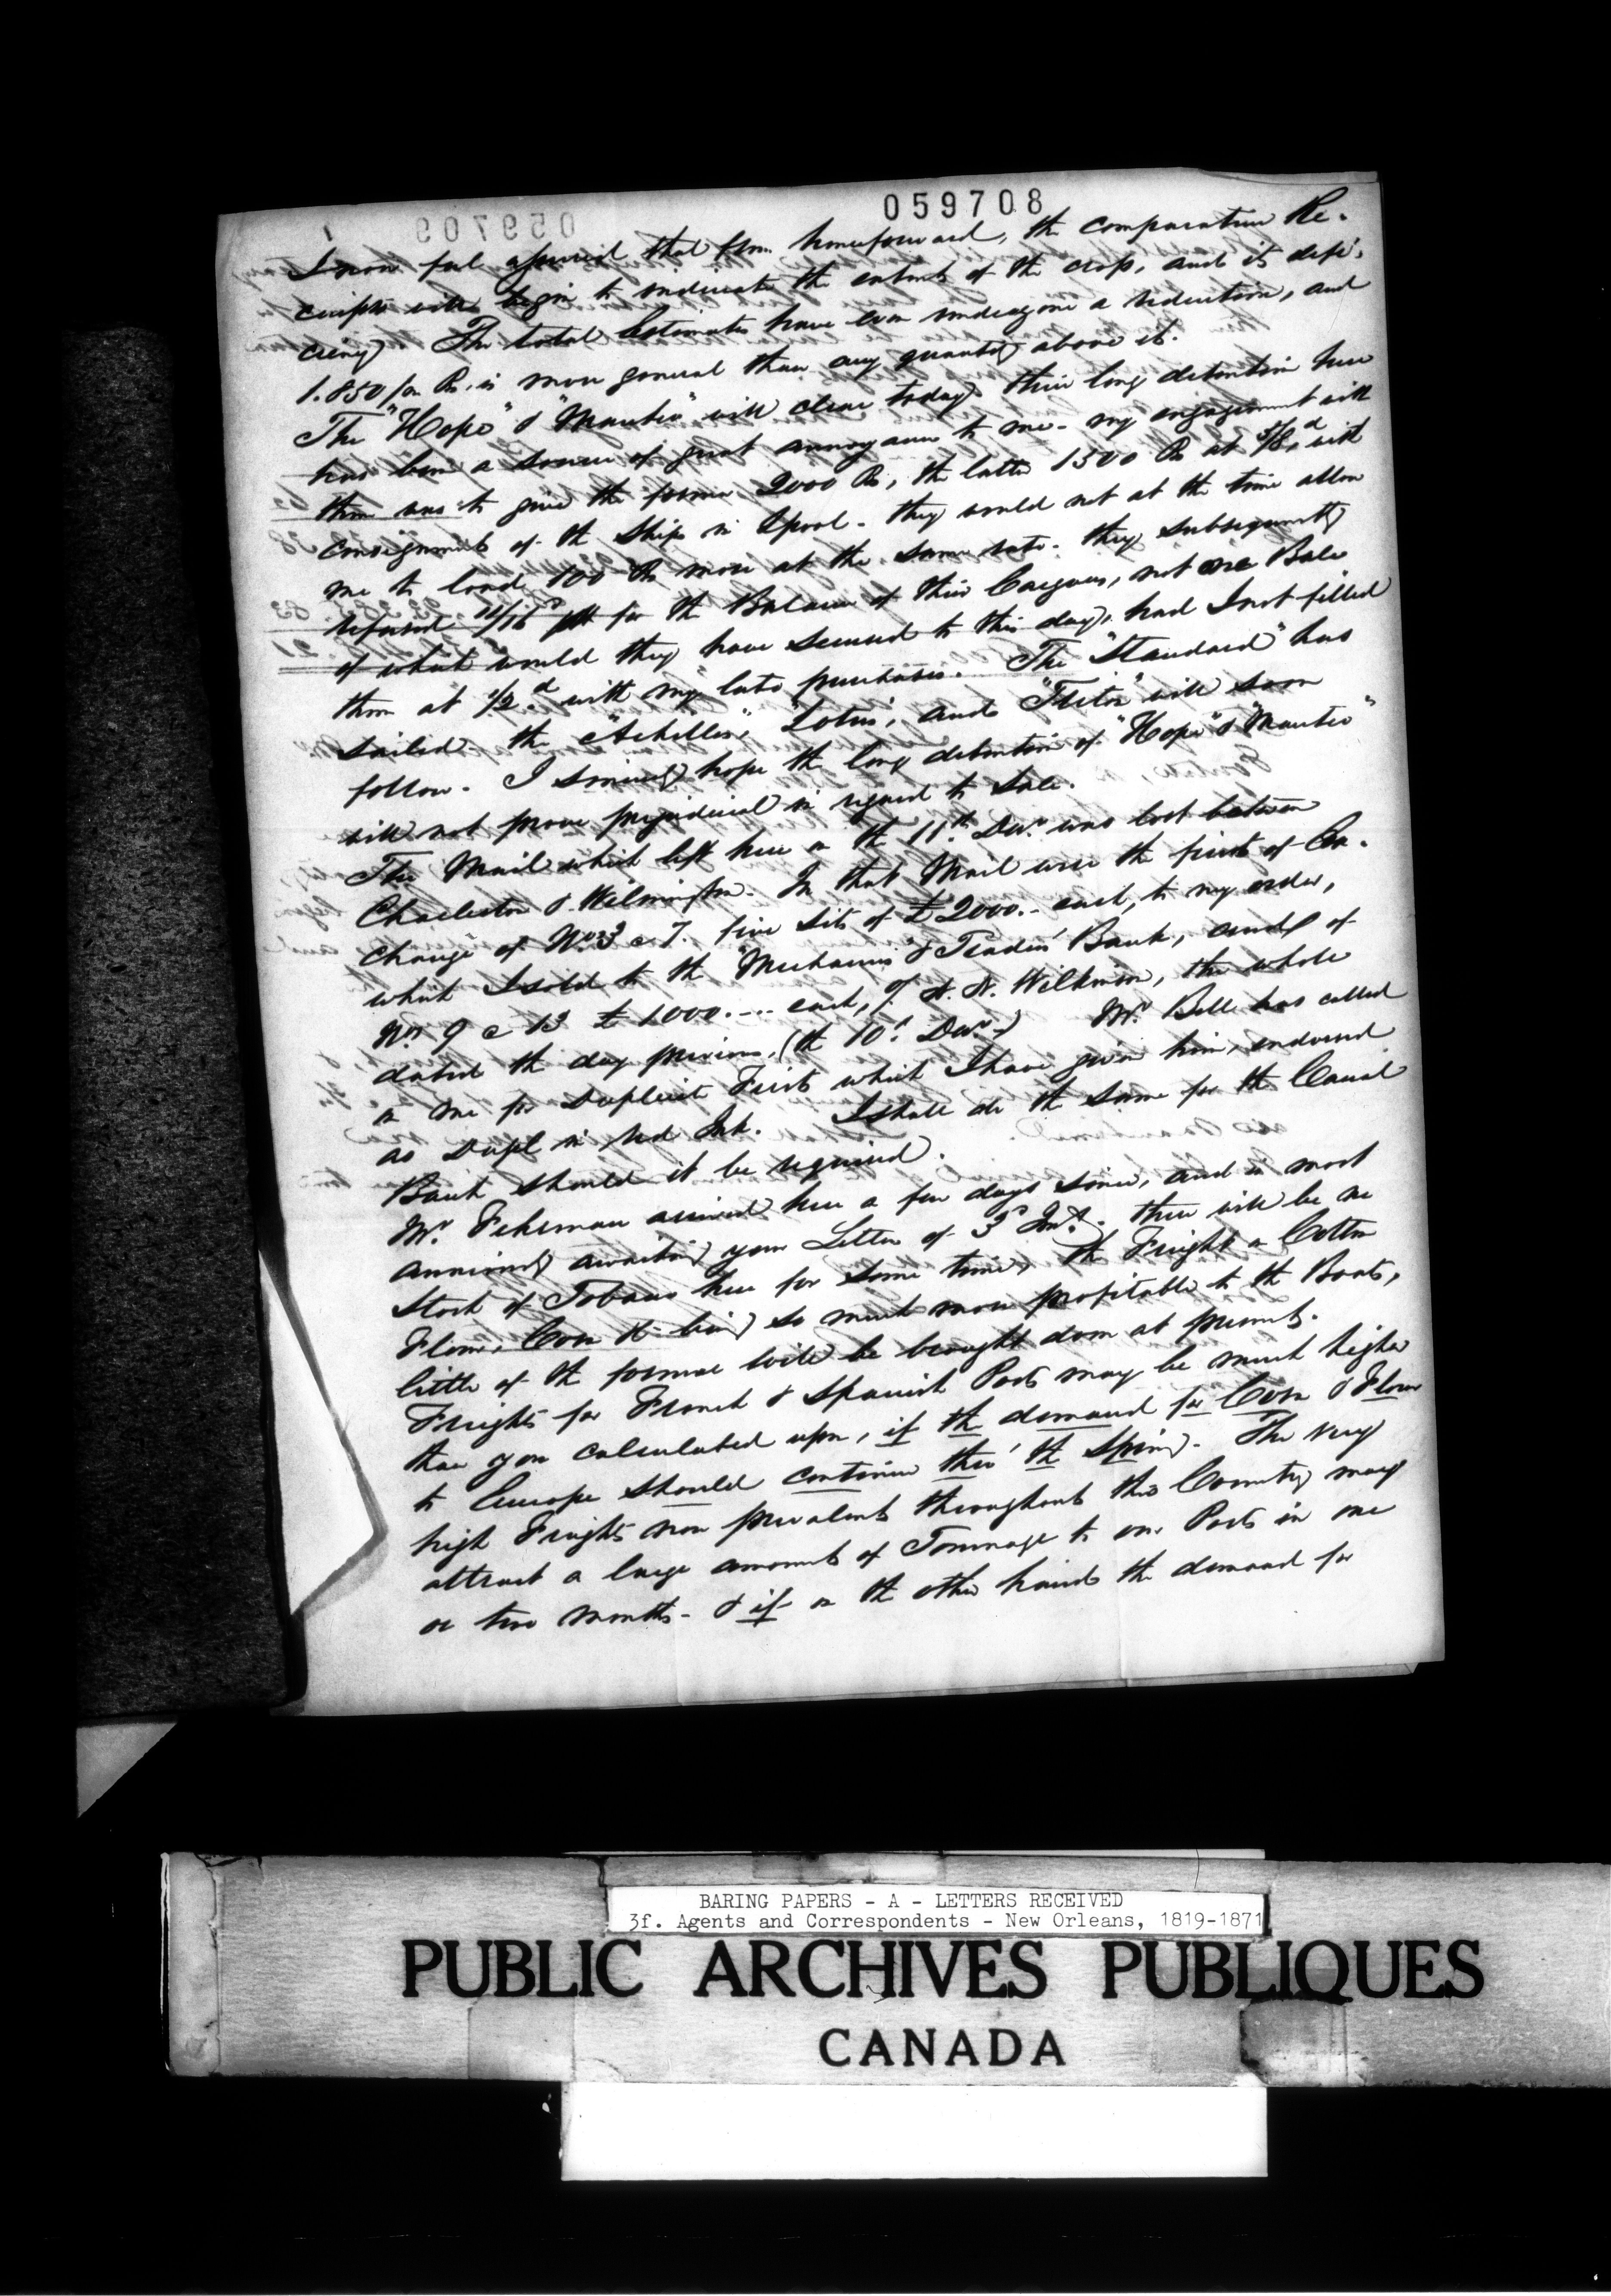 059708
I now feel assured that from henceforward, the comparative Re-
ceipts will begin to indicate the extent of the crop, and its defi-
ciency. The total Estimates have even undergone a reduction, and
1.850/m Bs. is more general than any quantity above it.
The "Hope" & "Manteo" will clear today. Their long detention here
has been a source of great annoyance to me - my engagement with
them was to give the former 2000 Bs, the latter 1500 Bs at 5/8d, with
consignment of the Ships in Lpool - they would not at the time allow
me to load 100 Bs more at the same rate - they subsequently
refused 11/16d for the Balance of their Cargoes, not one Bale
of which would they have secured to this day, had I not filled
them at 1/2d with my late purchases. The "Standard" has
sailed - the "Achilles", "Lotus", and will soon
follow. I sincerely hope the long detention of "Hope" & "Manteo"
will not prove prejudicial in regard to Sale.
The Mail which left here on the 11th Decr was lost between
Charleston & Wilmington. In that Mail were the firsts of Ex-
change of Nos 3 a 7. five sets of £2000.- each, to my order,
which I sold to the Mechanics' & Traders' Bank, and of
Nos 9 a 13 £1000.-.- each, Wilkinson, the whole
dated the day previous, (the 10th Decr) Mr Bell has called
on me for Duplicate Firsts which I have given him, endorsed
as Dupl in red Ink. I shall do the same for the Canal
Bank should it be required.
Mr arrived here a few days since, and is most
anxiously awaiting your Letter of 3d Inst. there will be no
Stock of Tobacco here for some time, the Freight on Cotton
Flour, Corn &c being so much more profitable to the Boats,
little of the former will be brought down at present.
Freights for French & Spanish Ports may be much higher
than you calculated upon, if the demand for Corn & Flour
to Europe should continue thro' the Spring. The very
high Freights now prevalent throughout this Country may
attract a large amount of Tonnage to our Ports in one
or two months - & if on the other hand the demand for
BARING PAPERS - A - LETTERS RECEIVED
3f. Agents and Correspondents - New Orleans, 1819-1871
PUBLIC ARCHIVES PUBLIQUES
CANADA